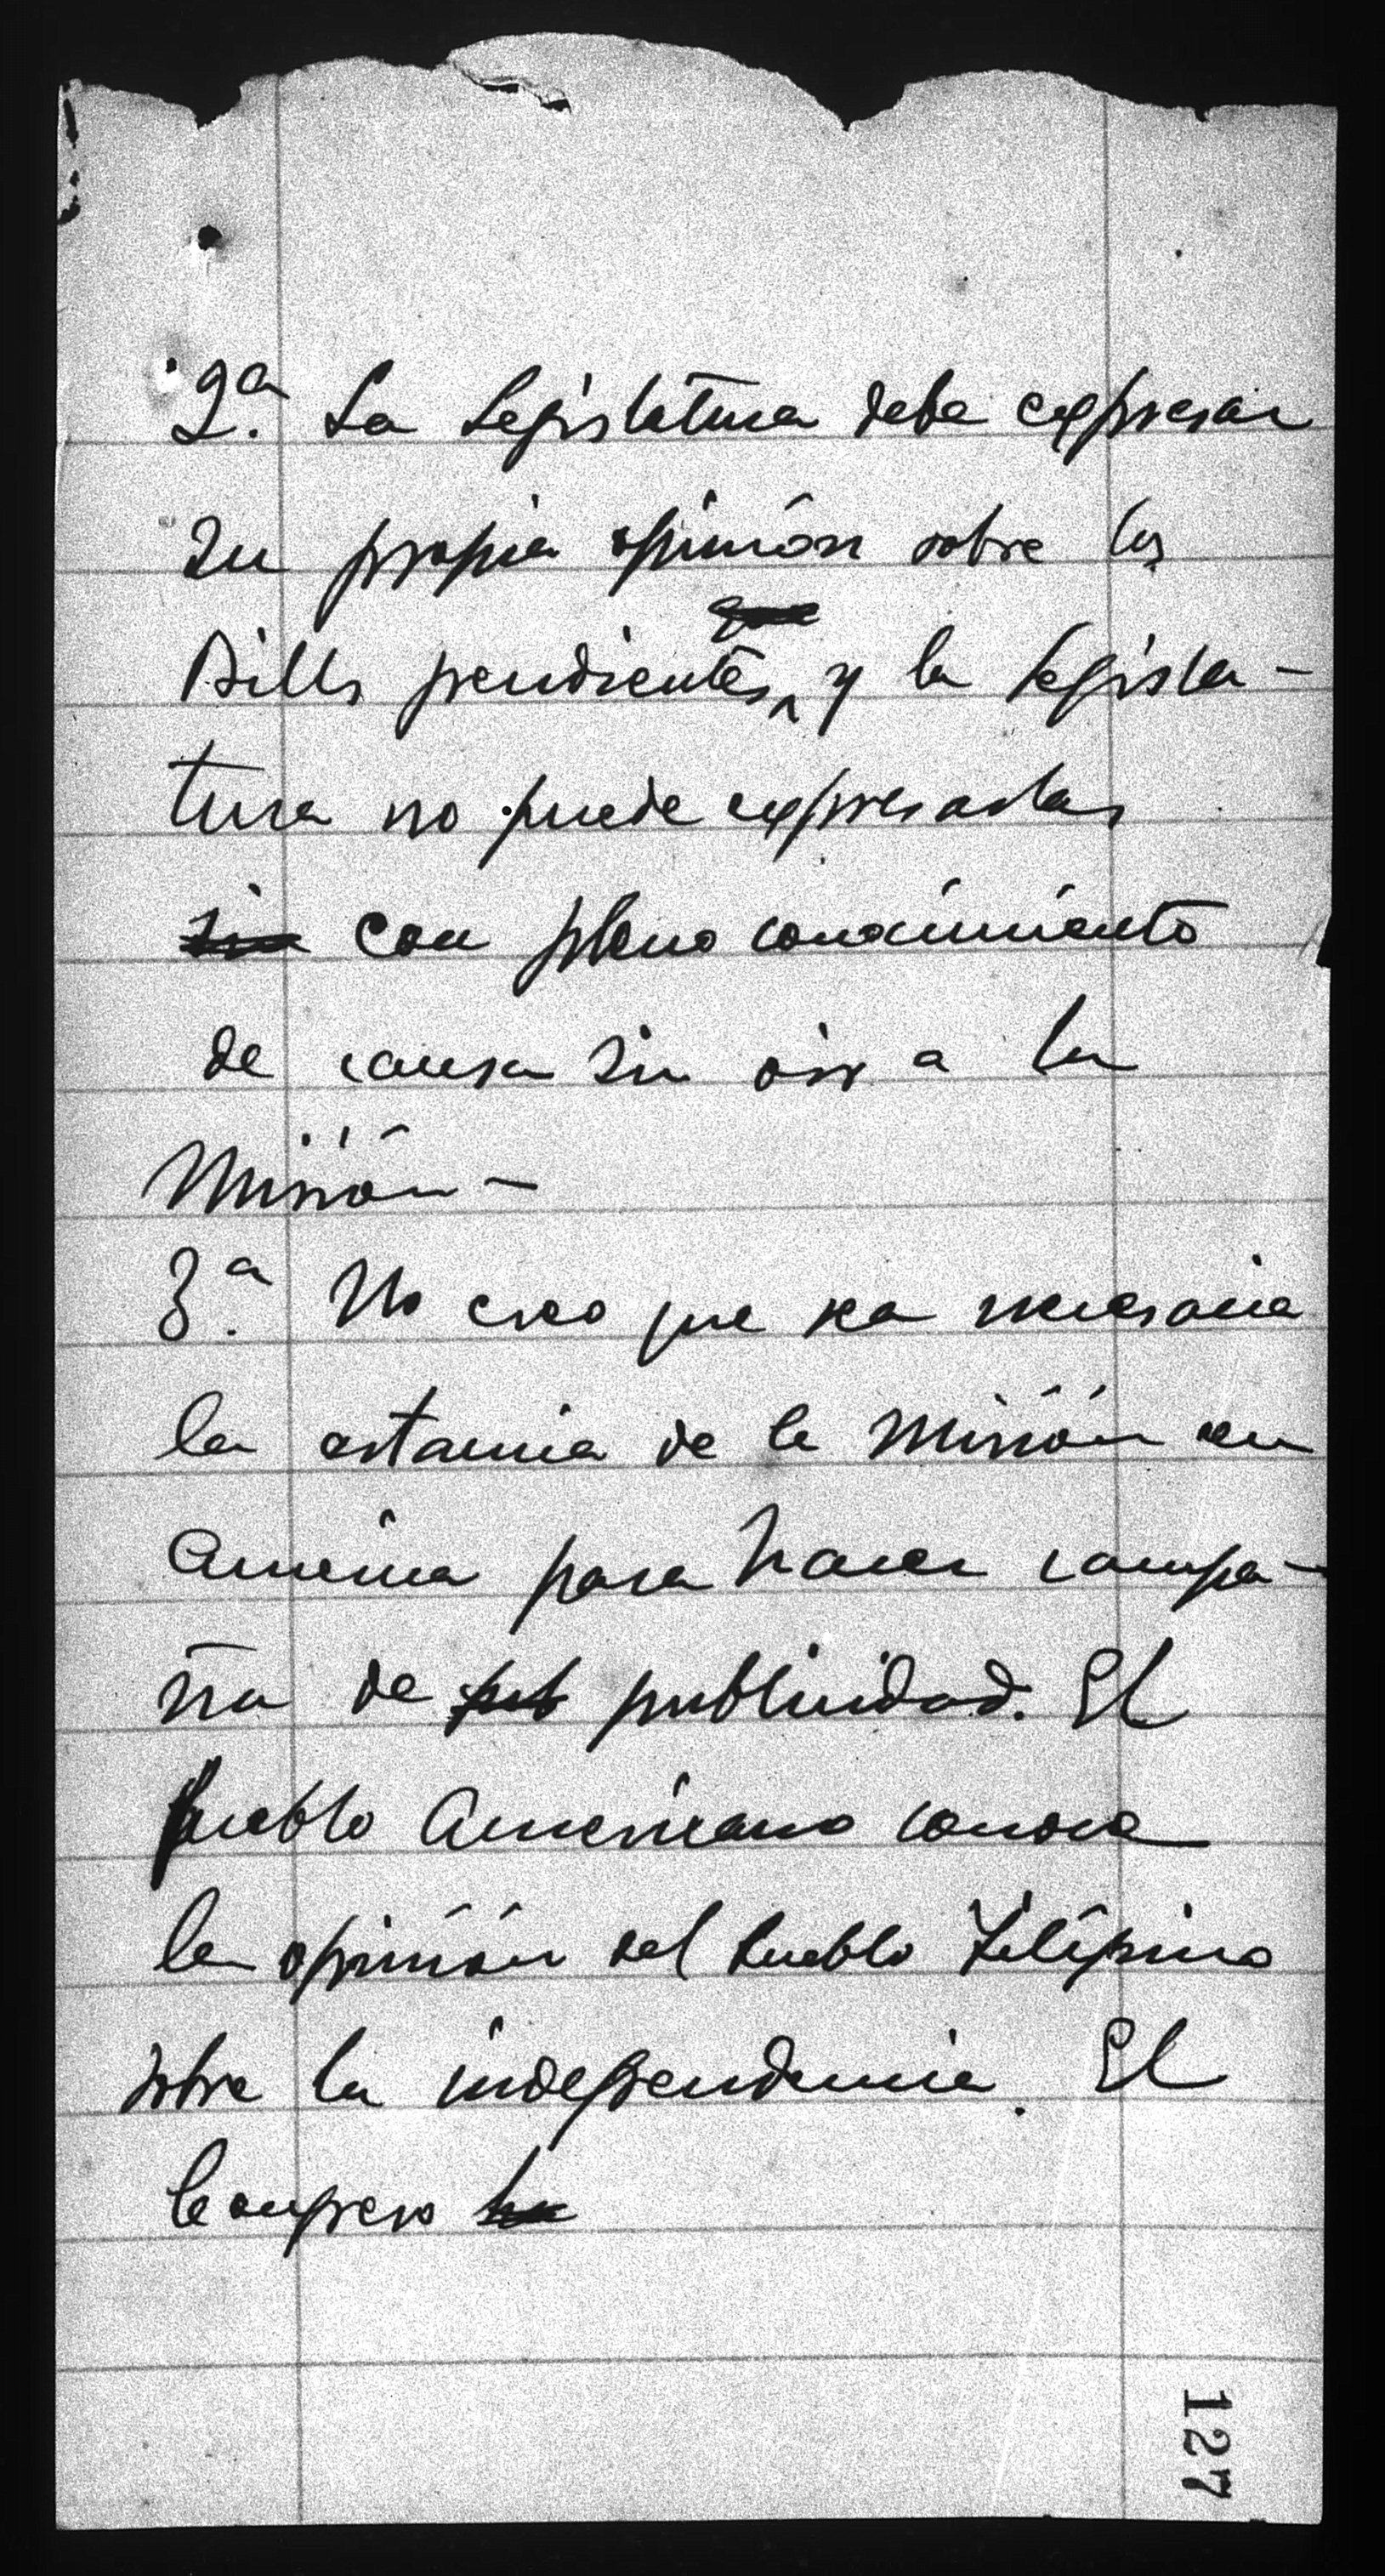 2ª. La Legislatura debe expresar
su propia opinión sobre los
Bills pendientes, y la Legisla-
tura no puede expresarlas
sin con pleno conocimiento
de causa sin oir a la
Misión-
3ª. No creo que sea necesaria
la estancia de la Misión en
America para hacer campa-
ña de pub publicidad. El
Pueblo Americano conoce
la opinión del Pueblo Filipino
sobre la independencia. El
Congreso ha
127